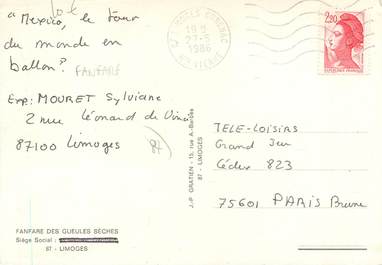 lot
" Mexico, le tour
du monde en
ballon ?
FANFARE
Exp: MOURET Sylviane
2 rue Léonard de Vinci
87100 Limoges
87
FANFARE DES GUEULES SÈCHES
Siège Social :
87 - LIMOGES
J.-P. GRATIEN - 15, rue A.-Barbès
87 - LIMOGES
19 H
27-5
1986
HTE VIENNE
2,20
TELE-LOISIRS
Grand Jeu
Cédex 823
75601 PARIS Brune